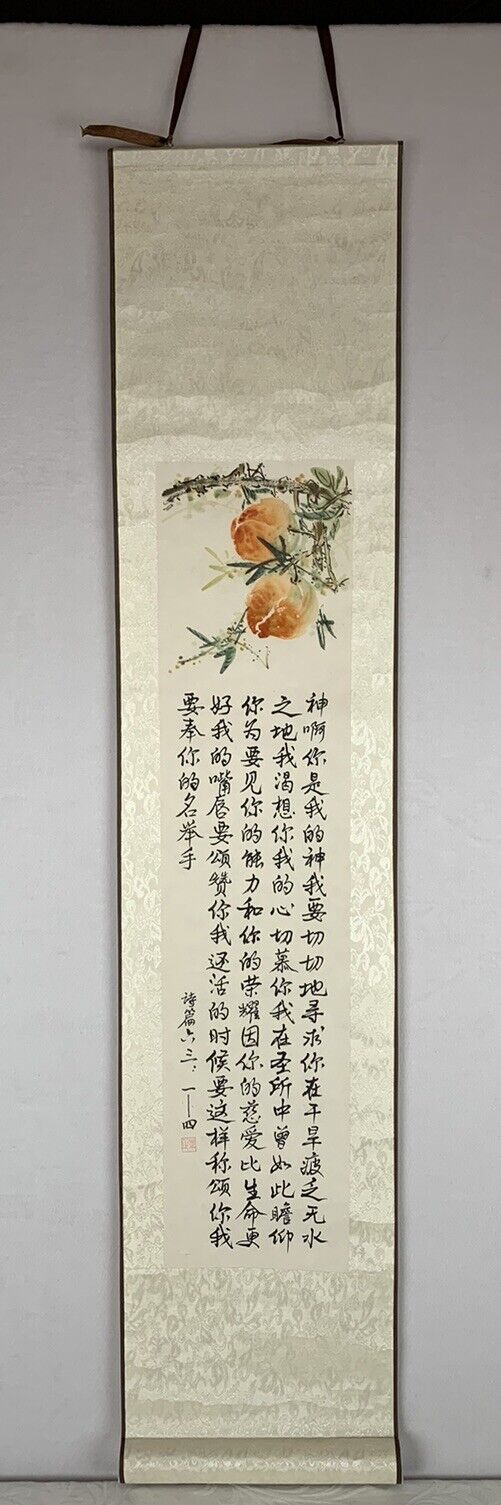 神啊你是我的神我要切切地寻求你在干旱疲乏无水
之地我渴想你我的心切慕你我在圣所中曾如此瞻仰
你为要见你的能力和你的荣耀因你的慈爱比生命更
好我的嘴唇要颂赞你我还活的时候要这样称颂你我
要奉你的名举手
詩篇六三:一——四